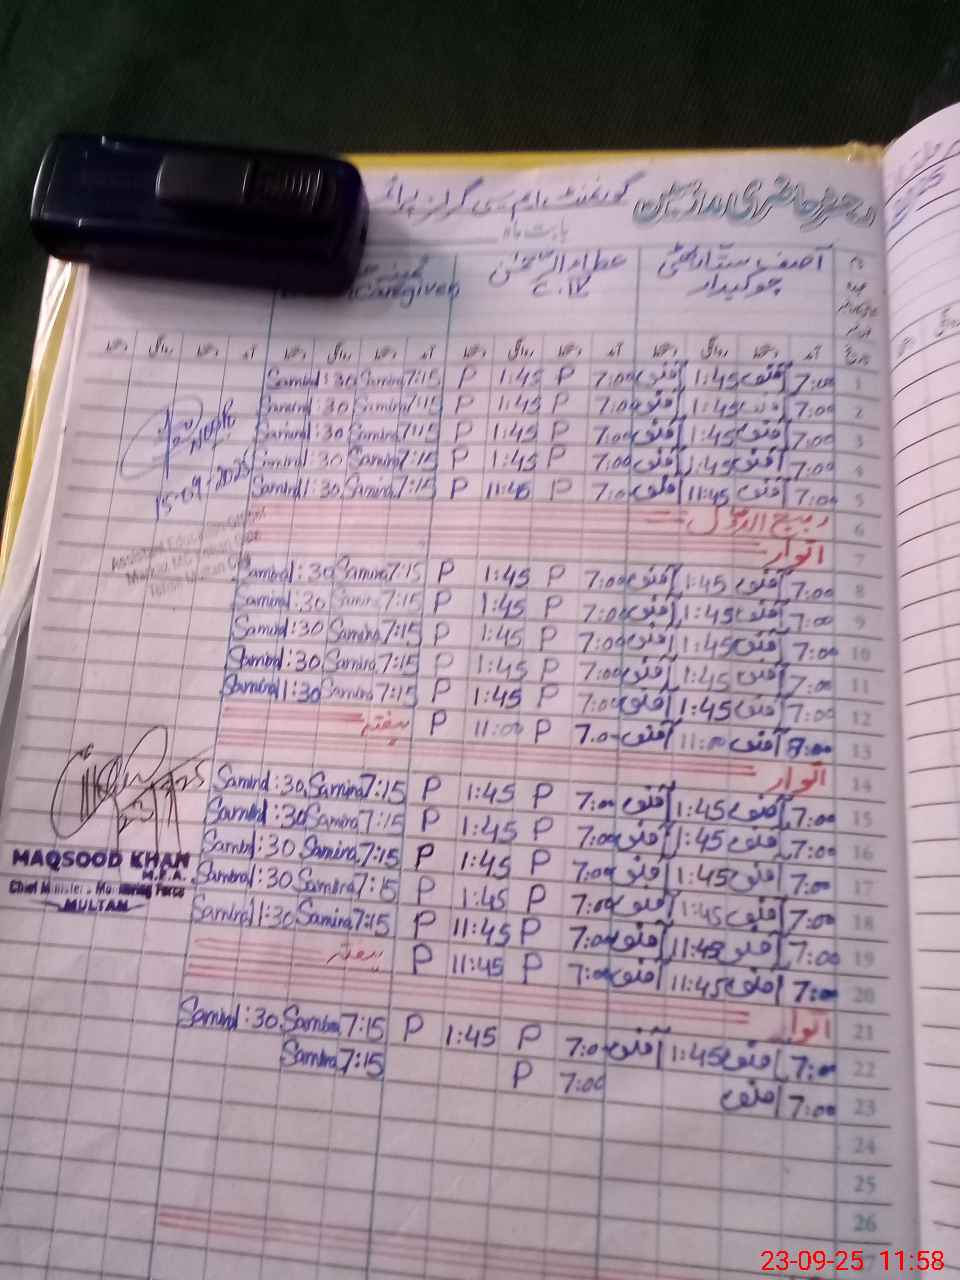 رجسٹر حاضری ملازمین گورنمنٹ ایم سی گرلز پرائمری
بابت ماہ
آصف ستار بھٹی عطاء الرحمٰن
چوکیدار C.IV Caregiver
آمد دستخط روانگی دستخط آمد دستخط روانگی دستخط آمد دستخط روانگی دستخط آمد دستخط روانگی دستخط
1 7:00 آصف 1:45 آصف 7:00 P 1:45 P 7:15 Samira 1:30 Samira
2 7:00 آصف 1:45 آصف 7:00 P 1:45 P 7:15 Samira 1:30 Samira
3 7:00 آصف 1:45 آصف 7:00 P 1:45 P 7:15 Samira 1:30 Samira
4 7:00 آصف 1:45 آصف 7:00 P 1:45 P 7:15 Samira 1:30 Samira
5 7:00 آصف 11:45 آصف 7:00 P 11:45 P 7:15 Samira 1:30 Samira
6 ربیع الاول
7 اتوار
8 7:00 آصف 1:45 آصف 7:00 P 1:45 P 7:15 Samira 1:30 Samira
9 7:00 آصف 1:45 آصف 7:00 P 1:45 P 7:15 Samira 1:30 Samira
10 7:00 آصف 1:45 آصف 7:00 P 1:45 P 7:15 Samira 1:30 Samira
11 7:00 آصف 1:45 آصف 7:00 P 1:45 P 7:15 Samira 1:30 Samira
12 7:00 آصف 1:45 آصف 7:00 P 1:45 P 7:15 Samira 1:30 Samira
13 8:00 آصف 11:00 آصف 7:0 P 11:00 P ہفتہ
14 اتوار
15 7:00 آصف 1:45 آصف 7:00 P 1:45 P 7:15 Samira 1:30 Samira
16 7:00 آصف 1:45 آصف 7:00 P 1:45 P 7:15 Samira 1:30 Samira
17 7:00 آصف 1:45 آصف 7:00 P 1:45 P 7:15 Samira 1:30 Samira
18 7:00 آصف 1:45 آصف 7:00 P 1:45 P 7:15 Samira 1:30 Samira
19 7:00 آصف 11:45 آصف 7:00 P 11:45 P 7:15 Samira 1:30 Samira
20 7:00 آصف 11:45 آصف 7:00 P 11:45 P ہفتہ
21 اتوار
22 7:00 آصف 1:45 آصف 7:00 P 1:45 P 7:15 Samira 1:30 Samira
23 7:00 آصف 7:00 P 7:15 Samira
24
25
26
15-09-2025
Assistant Education Officer
Tehsil Multan City
MAQSOOD KHAN
M.E.A.
Chief Minister's Monitoring Force
MULTAN
23-09-25 11:58